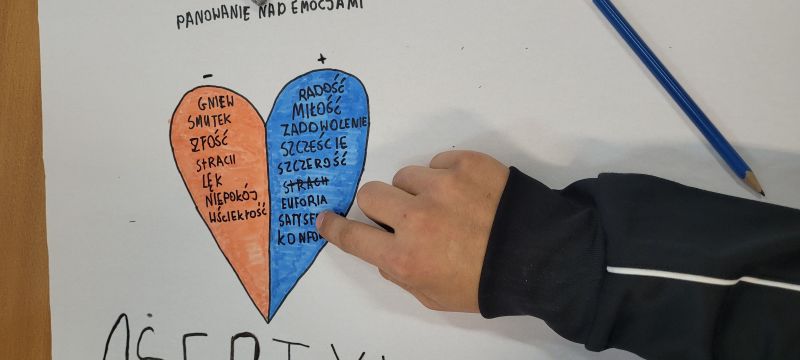 PANOWANIE NAD EMOCJAMI
-
+
GNIEW
SMUTEK
ZŁOŚĆ
STRACH
LĘK
NIEPOKÓJ
WŚCIEKŁOŚĆ
RADOŚĆ
MIŁOŚĆ
ZADOWOLENIE
SZCZĘŚCIE
SZCZEROŚĆ
STRACH
EUFORIA